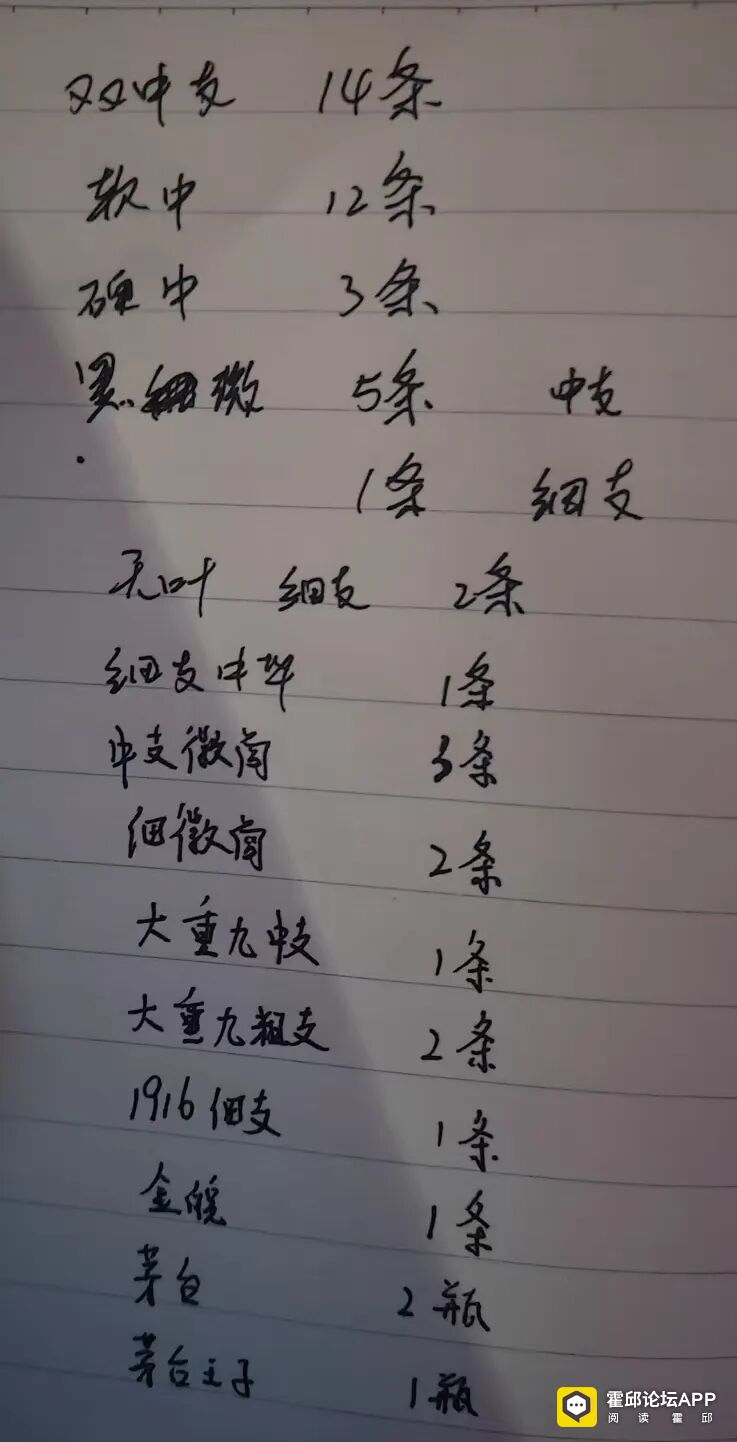 双中支 14条
软中 12条
硬中 3条
黑徽 5条 中支
1条 细支
天叶 细支 2条
细支中华 1条
中支徽商 3条
细徽商 2条
大重九中支 1条
大重九粗支 2条
1916细支 1条
金皖 1条
茅台 2瓶
茅台王子 1瓶
霍邱论坛APP
阅读霍邱